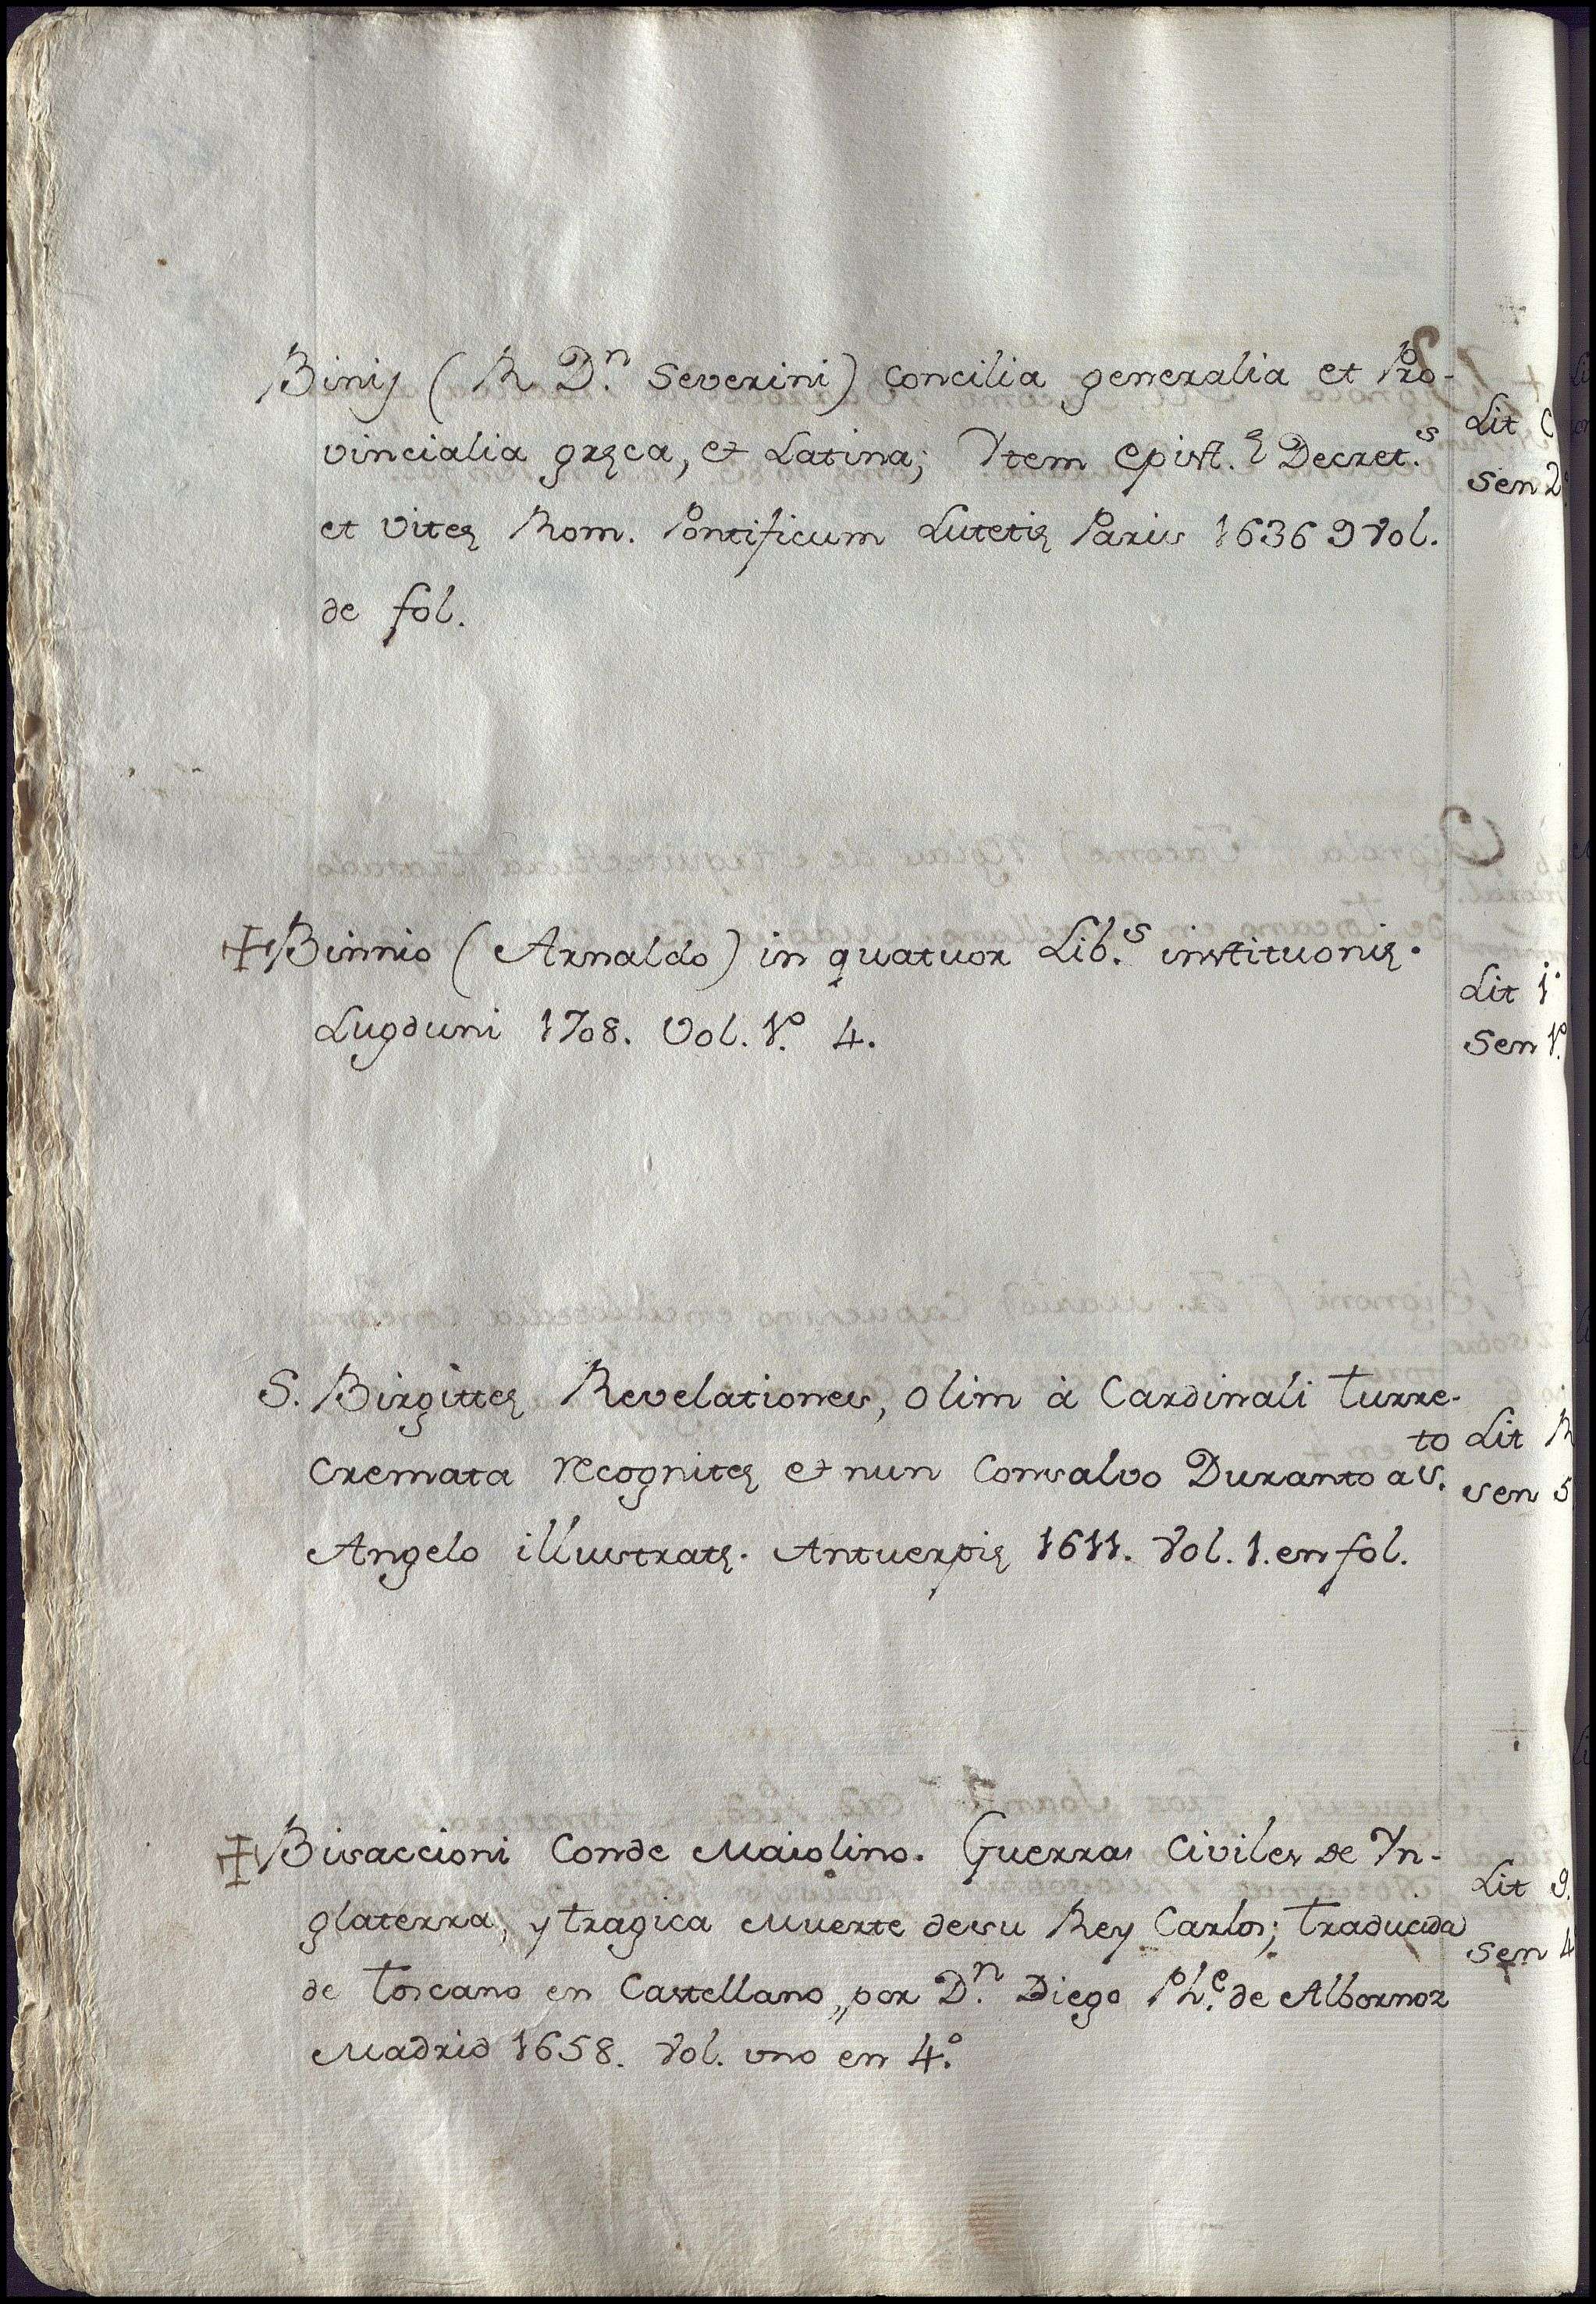 Binij (R D.ⁿ Severini) Concilia generalia et Pro-
vincialia gręca, et Latina; Ytem epist.ę Decret.s
Lit C
Sen 2
et vitę Rom. Pontificum Lutetię Paris 1636 9 Vol.
de fol.
✠ Binnio (Arnaldo) in quatuor Lib.s instituonię.
Lugduni 1708. Vol. 1.º 4.
Lit 1
Sen 1.º
S. Birgittę Revelationes, olim à Cardinali turre-
cremata recognitę et nun Consalvo Duranto a S.to
Lit R
Sen 5
Angelo illustratę. Antuerpię 1611. Vol. 1. en fol.
✠ Bisaccioni Conde Maiolino. Guerras Civiles de Yn-
glaterra, y tragica Muerte desu Rey Carlos; traducida
Lit 9.
Sen 4
de toscano en Castellano, por D.ⁿ Diego Ph.e de Albornoz
Madrid 1658. Vol. uno en 4.º